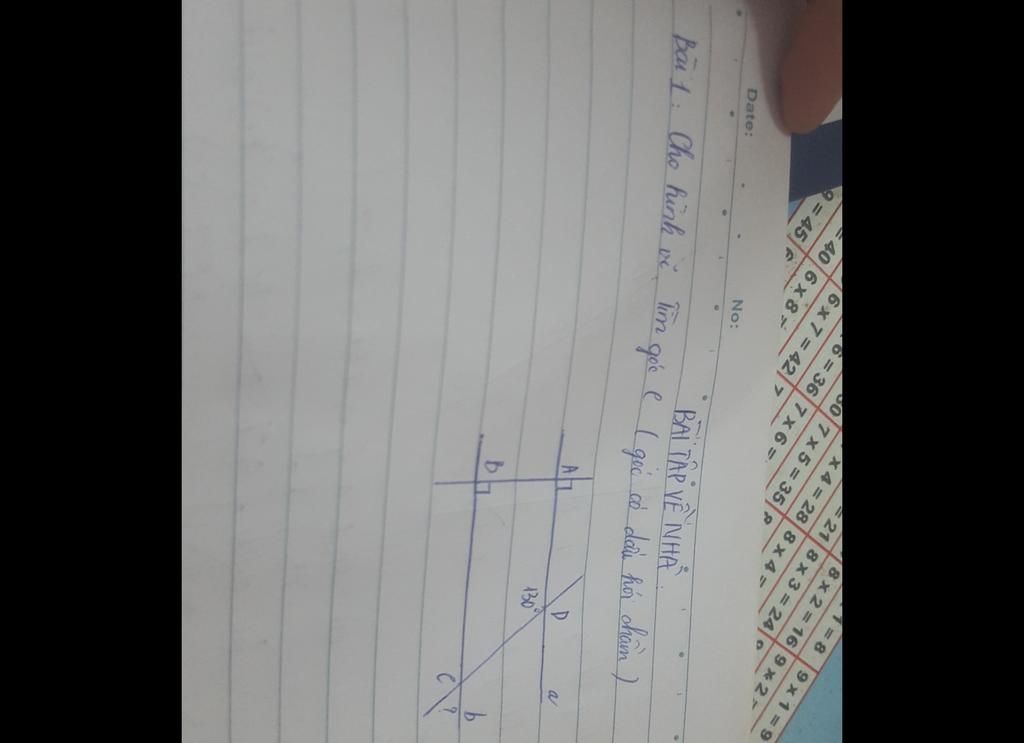 Date: No:
BÀI TẬP VỀ NHÀ
Bài 1: Cho hình vẽ Tìm góc C (góc có dấu hỏi chấm)
A
D
a
B
130°
C
?
b
9 × 1 = 9
1 = 8
9 × 2
8 × 2 = 16
= 21
8 × 3 = 24
× 4 = 28
8 × 4 =
7 × 5 = 35
6 = 36
7 × 6 =
6 × 7 = 42
= 40
6 × 8
9 = 45